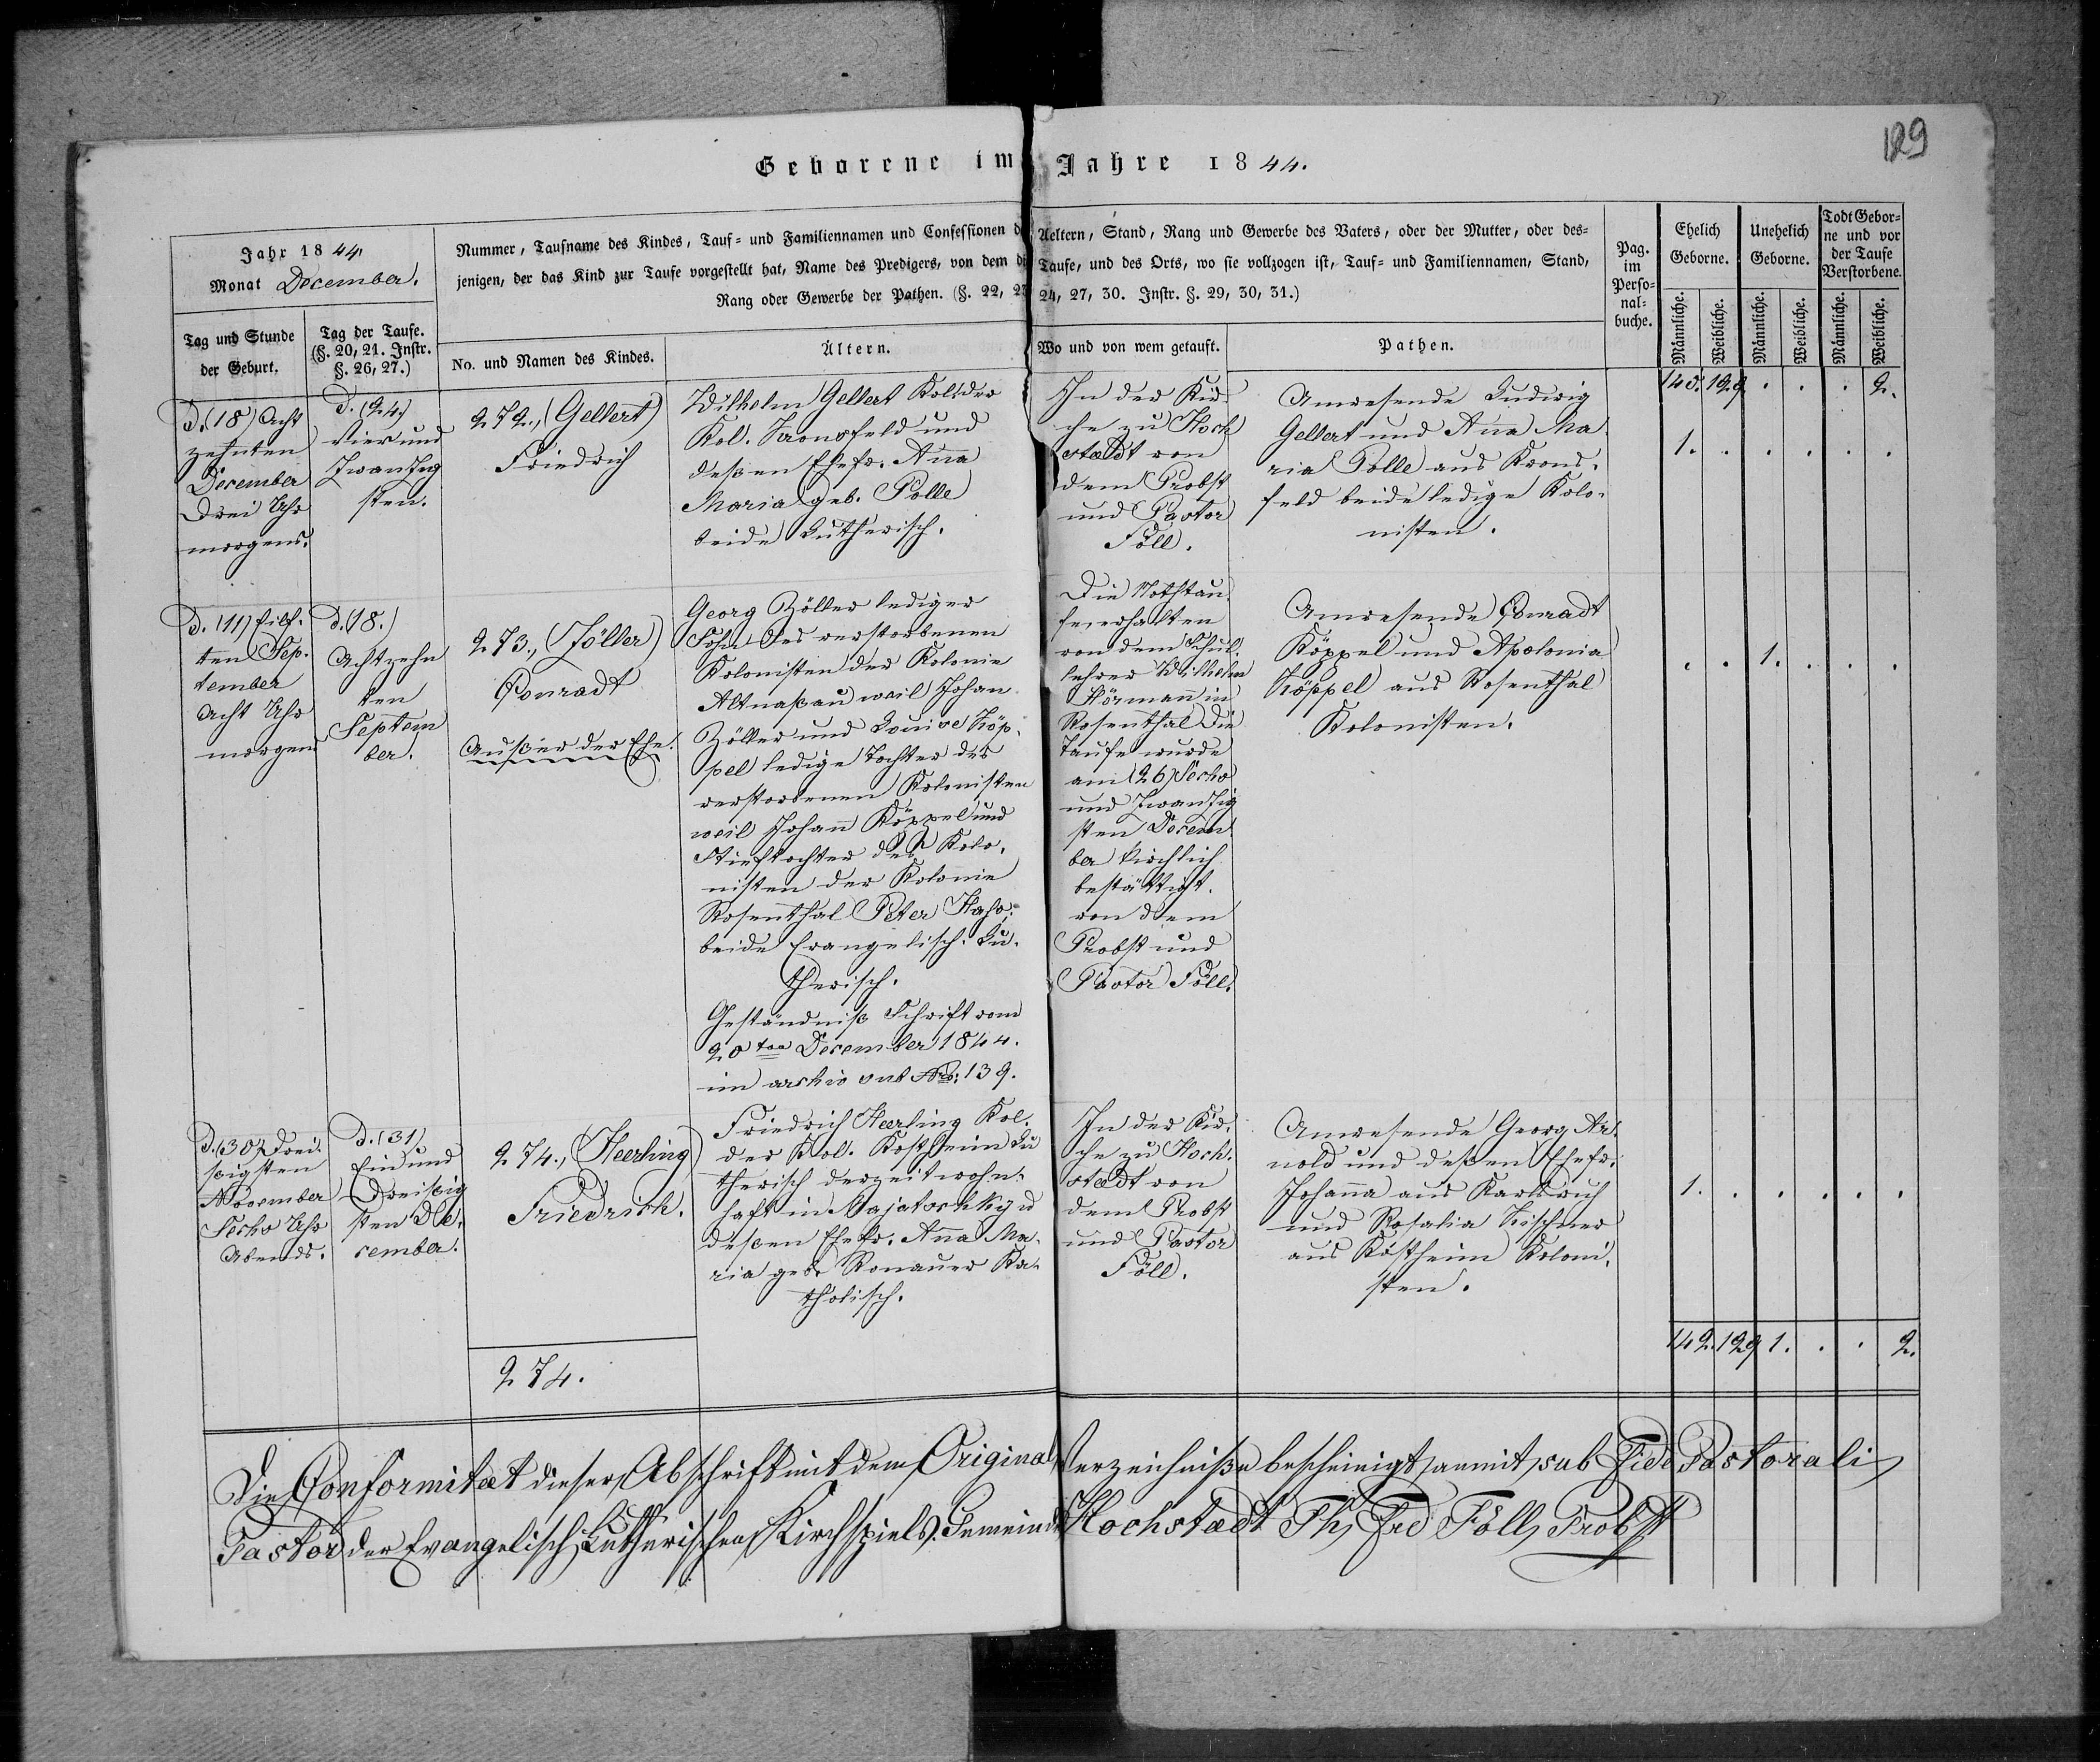 129
Geborene im Jahre 1844.
Jahr 1844
Monat December.
Nummer, Taufname des Kindes, Tauf- und Familiennamen und Confessionen d Aeltern, Stand, Rang und Gewerbe des Vaters, oder der Mutter, oder des-
jenigen, der das Kind zur Taufe vorgestellt hat, Name des Predigers, von dem di Taufe, und des Orts, wo sie vollzogen ist, Tauf- und Familiennamen, Stand,
Rang oder Gewerbe der Pathen. (§. 22, 23 24, 27, 30. Instr. §. 29, 30, 31.)
Pag.
im
Perso-
nal-
buche.
Ehelich
Geborne.
Unehelich
Geborne.
Todt Gebor-
ne und vor
der Taufe
Verstorbene.
Männliche.
Weibliche.
Männliche.
Weibliche.
Männliche.
Weibliche.
Tag und Stunde
der Geburt.
Tag der Taufe.
(§. 20, 21. Instr.
§. 26, 27.)
No. und Namen des Kindes.
Ältern.
Wo und von wem getauft.
Pathen.
140. 129 . . . 2.
D. (18) Acht
zehnten
December
Drei Uhr
morgens.
D. (24)
Vier und
Zwanzig
sten.
272., (Gellert)
Friedrich
Wilhelm Gellert Kol. der
Kol. Kronsfeld und
deßen Ehefr. Anna
Maria geb. Polle
beide Lutherisch.
In der Kir-
che zu Hoch
staedt von
dem Probst
und Pastor
Föll.
Anwesende Ludwig
Gellert und Anna Ma-
ria Polle aus Krons-
feld beide ledige Kolo-
nisten.
1. . . . . .
D. (11) Eilf-
ten Sep-
tember
Acht Uhr
morgens
d. (18.)
Achtzehn
ten
Septem
ber.
273., (Zöller)
Conradt
Außer der Ehe.
Georg Zöller lediger
Sohn des verstorbenen
Kolonisten der Kolonie
Altnaßau weil Johan
Zöller und Louise Köp-
pel ledige Tochter des
verstorbenen Kolonisten
weil Johann Köppel und
Stieftochter des Kolo-
nisten der Kolonie
Rosenthal Peter
beide Evangelisch-Lu-
therisch.
Geständniß Schrift vom
20ten December 1844.
im archiv sub Nro: 139.
Die Nothtau-
fe erhalten
von dem Schul-
lehrer Wilhelm
Hörmann in
Rosenthal Die
Taufe wurde
am (26) Sechs
und Zwanzig
sten Decem
ber kirchlich
bestättigt.
von dem
Probst und
Pastor Föll.
Anwesende Conradt
Köppel und Apolonia
Köppel aus Rosenthal
Kolonisten.
. . 1. . . .
D. (30) Drei-
ßigsten
November
Sechs Uhr
Abends.
D. (31)
Ein und
Dreißig
sten De-
cember.
274., (Heerling)
Friedrich.
Friedrich Heerling Kol.
der Kol. Kostheim Lu
therisch derzeit wohn-
haft in
deßen Ehefr. Anna Ma-
ria geb. Ronauer Ka-
tholisch.
In der Kir-
che zu Hoch-
staedt von
dem Probst
und Pastor
Föll.
Anwesende Georg Ar-
nold und deßen Ehefr.
Johanna aus Karlsruh
und Rosalia
aus Kostheim Koloni-
sten.
1. . . . . .
142. 129 1. . . 2.
274.
Die Conformitaet dieser Abschrift mit dem Original Verzeichniße bescheinigt anmit sub Fide Pastorali
Pastor der Evangelisch Lutherischen Kirchspiels-Gemeinde Hochstaedt Th. Frd Föll, Probst